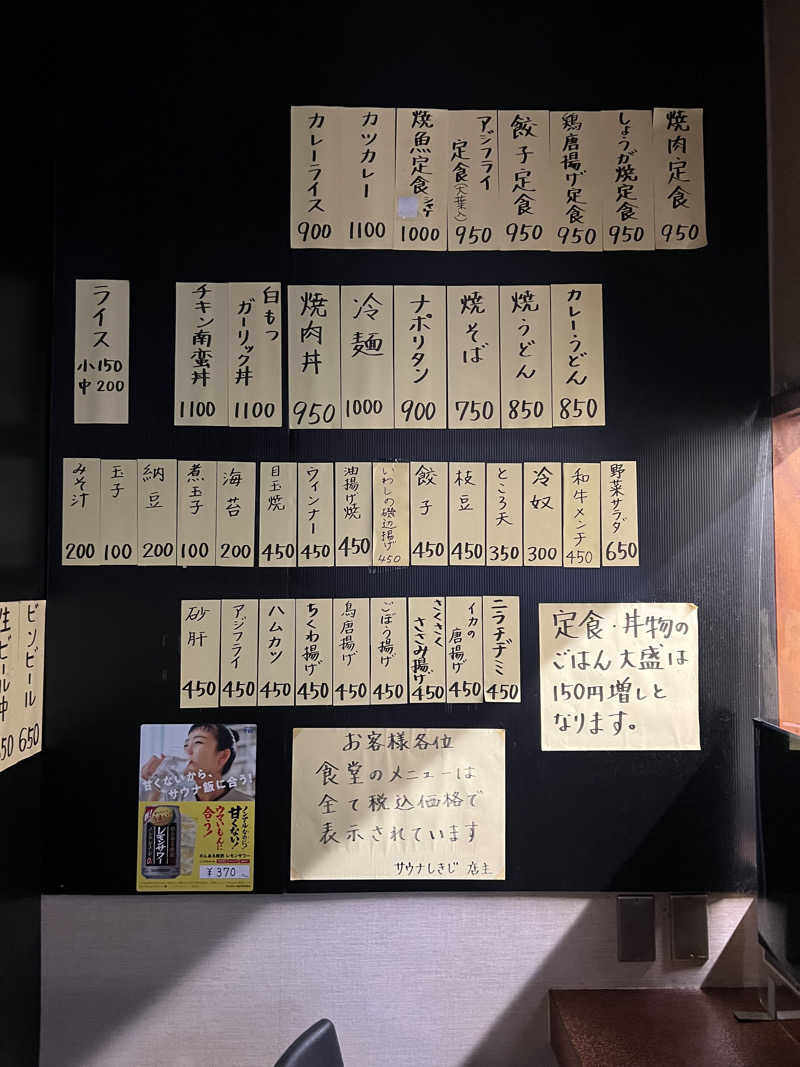 焼肉定食 950
しょうが焼定食 950
鶏唐揚げ定食 950
餃子定食 950
アジフライ定食(大葉入) 950
焼魚定食 シャケ 1000
カツカレー 1100
カレーライス 900
カレーうどん 850
焼うどん 850
焼そば 750
ナポリタン 900
冷麺 1000
焼肉丼 950
白もつガーリック丼 1100
チキン南蛮丼 1100
ライス
小150
中200
野菜サラダ 650
和牛メンチ 450
冷奴 300
ところ天 350
枝豆 450
餃子 450
いわしの磯辺揚げ 450
油揚げ焼 450
ウィンナー 450
目玉焼 450
海苔 200
煮玉子 100
納豆 200
玉子 100
みそ汁 200
ニラチヂミ 450
イカの唐揚げ 450
さくさくささみ揚げ 450
ごぼう揚げ 450
鳥唐揚げ 450
ちくわ揚げ 450
ハムカツ 450
アジフライ 450
砂肝 450
ビンビール 650
生ビール中 50
定食・丼物の
ごはん大盛は
150円増しと
なります。
お客様各位
食堂のメニューは
全て税込価格で
表示されています
サウナしきじ 店主
甘くないから、
サウナ飯に合う!
ノンアルなのに!
甘くない!
ウマいもんに
合う!
レモンサワー
のんある晩酌 レモンサワー
¥370